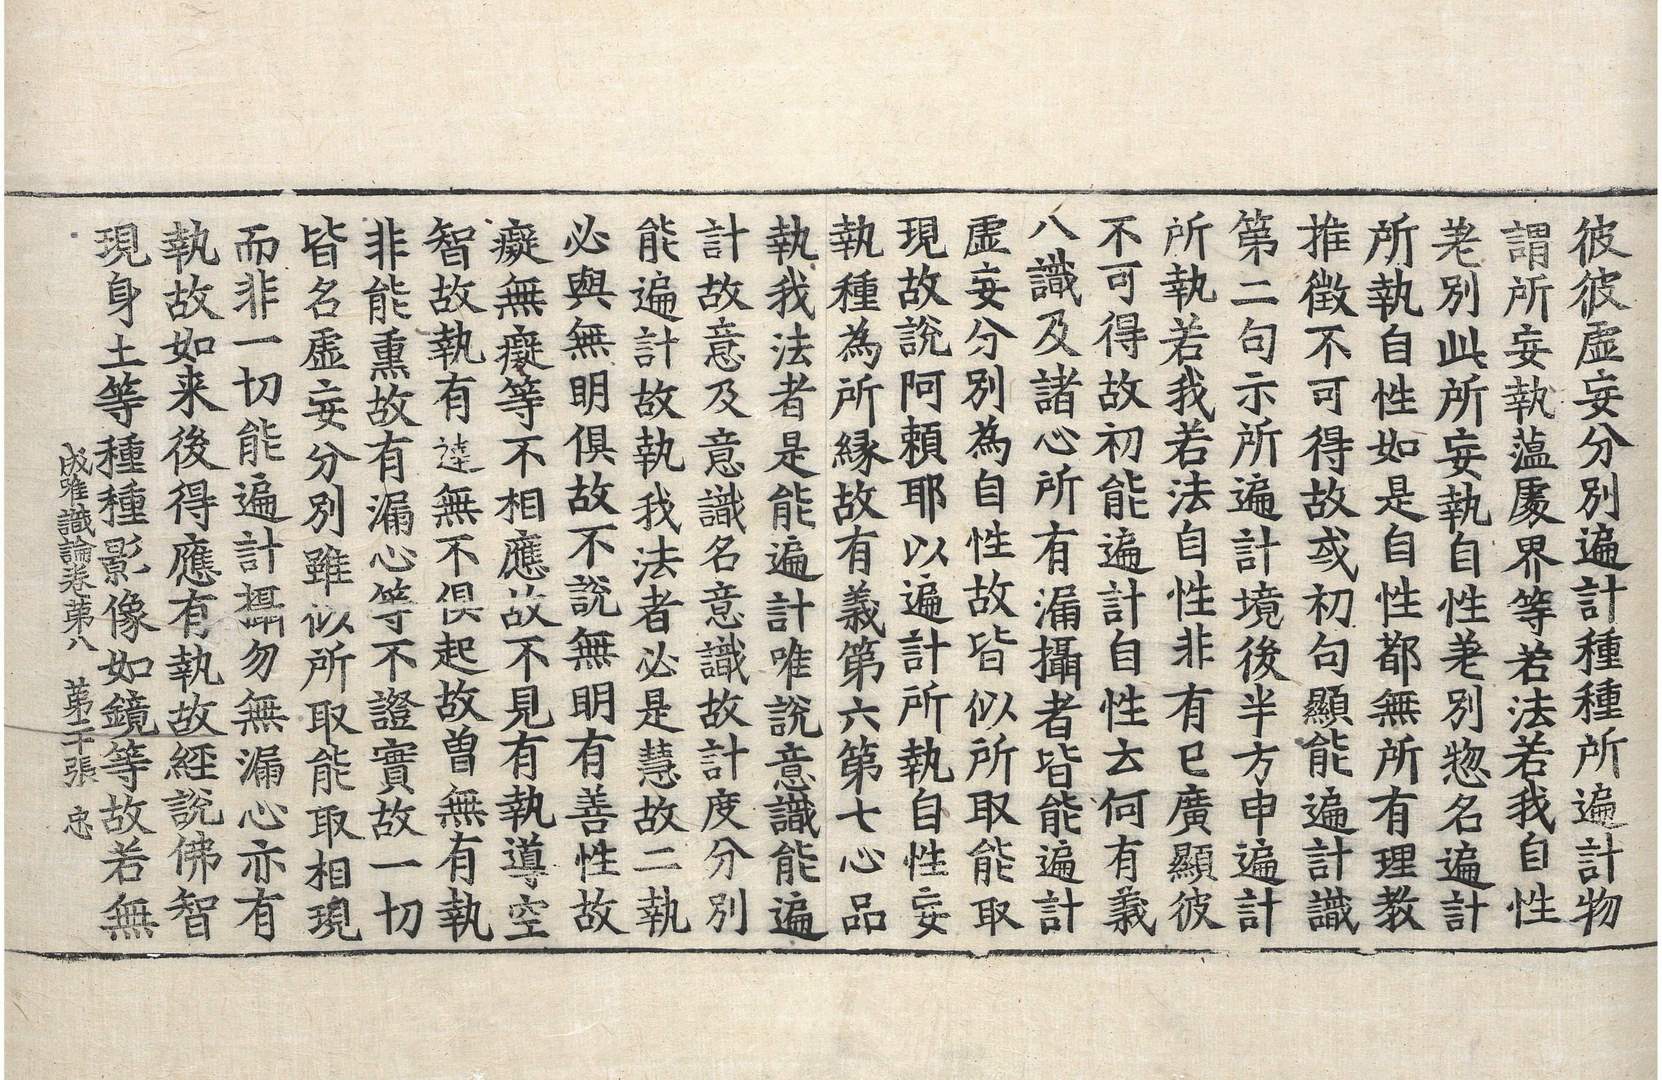 彼彼虛妄分別遍計種種所遍計物
謂所妄執蘊處界等若法若我自性
差別此所妄執自性差別惣名遍計
所執自性如是自性都無所有理教
推徵不可得故或初句顯能遍計識
第二句示所遍計境後半方申遍計
所執若我若法自性非有已廣顯彼
不可得故初能遍計自性云何有義
八識及諸心所有漏攝者皆能遍計
虛妄分別為自性故皆似所取能取
現故說阿賴耶以遍計所執自性妄
執種為所緣故有義第六第七心品
執我法者是能遍計唯說意識能遍
計故意及意識名意識故計度分別
能遍計故執我法者必是慧故二執
必與無明俱故不說無明有善性故
癡無癡等不相應故不見有執導空
智故執有達無不俱起故曾無有執
非能熏故有漏心等不證實故一切
皆名虛妄分別雖似所取能取相現
而非一切能遍計攝勿無漏心亦有
執故如来後得應有執故経說佛智
現身土等種種影像如鏡等故若無
成唯識論卷第八　第二十張　忠